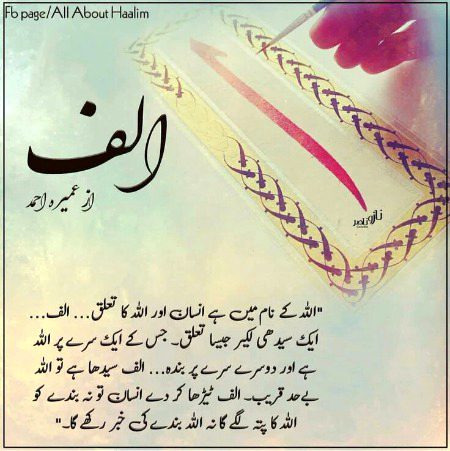 Fb page/All About Haalim
ا
الف
از عمیرہ احمد
نازوناصر
"اللہ کے نام میں ہے انسان اور اللہ کا تعلق... الف...
ایک سیدھی لکیر جیسا تعلق۔ جس کے ایک سرے پر اللہ
ہے اور دوسرے سرے پر بندہ... الف سیدھا ہے تو اللہ
بےحد قریب۔ الف ٹیڑھا کر دے انسان تو نہ بندے کو
اللہ کا پتہ لگے گا نہ اللہ بندے کی خبر رکھے گا۔"